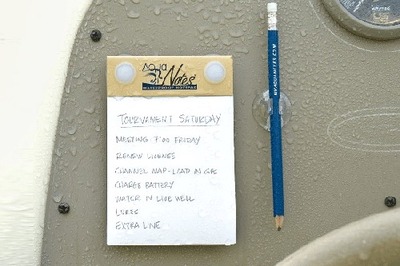 AQUA
Notes
WATERPROOF NOTEPAD
TOURNAMENT SATURDAY
MEETING 7:00 FRIDAY
RENEW LICENSE
CHANNEL MAP - LOAD IN GPS
CHARGE BATTERY
WATER IN LIVE WELL
LURES
EXTRA LINE